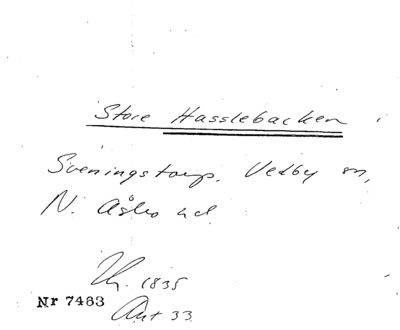 Store Hasslebacken
Sveningstorp, Vedby sn,
N. Åsbo hd
1835
Nr 7483
Akt 33